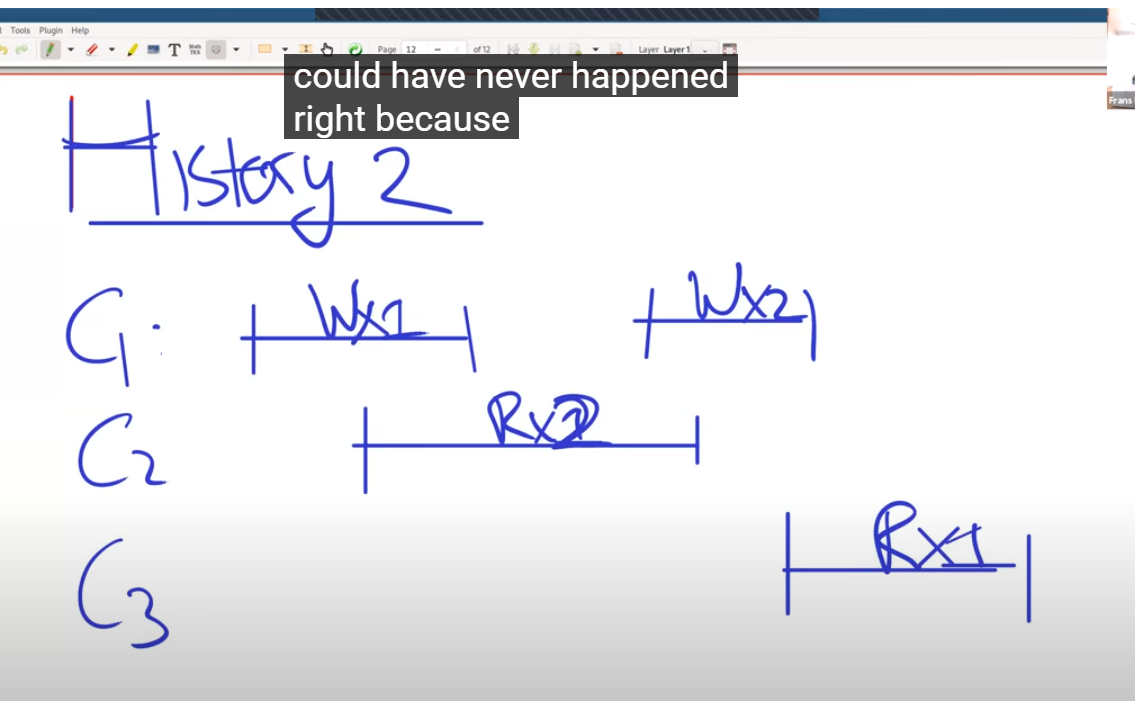 Tools Plugin Help
Page 12 of 12 Layer Layer 1
could have never happened
right because
Frans
History 2
C1: Wx1 Wx2
C2 Rx2
C3 Rx1